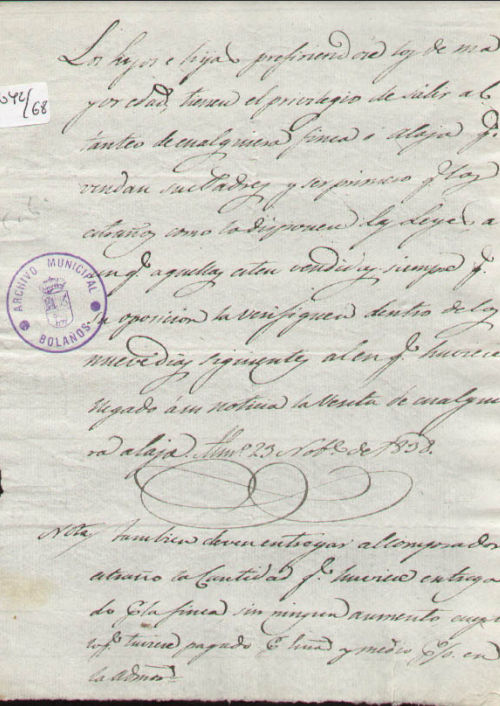 Los hijos e hijas prefiriendose los de ma
yor edad, tienen el privilegio de salir al
tanteo de cualquiera finca o alaja q.e
vendan sus Padres y ser primero q.e los
estraños como lo disponen las Leyes, a
un q.e aquellas esten vendidas siempre q.e
su oposicion la verifiquen dentro de los
nueve dias siguientes al en q.e huviese
llegado á su noticia la Venta de cualqui
ra alaja. Alm.o 23 Nob.e de 1838.
Nota, tambien deven entregar al comprador
estraño la Cantidad q.e huviese entrega
do p.r la finca sin ningun aumento
lo q.e huviese pagado y medio p.% en
la admon.
642/68
ARCHIVO MUNICIPAL
BOLAÑOS